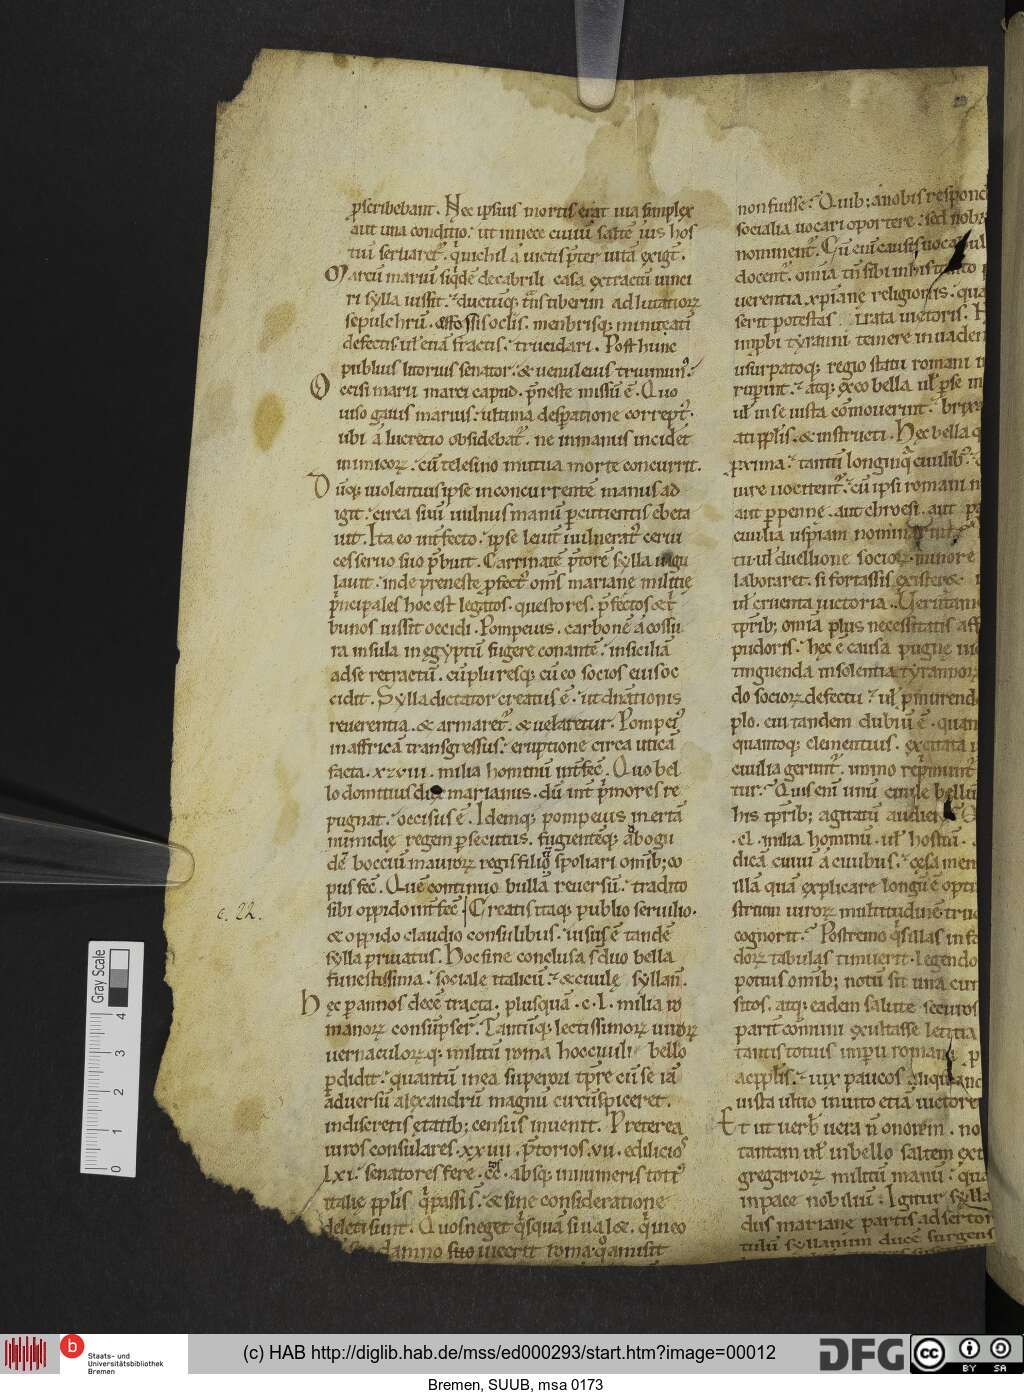 p̄scribebant. Nec ipsius mortis erat uia simplex
aut una conditio. ut in nece ciuiū saltē ius hos
tiū seruaret̄. qui nichil a uictis p̄ter uitā exigt̄.
Marcū mariū siqdē decabrili casa extractū uinci
ri sylla iussit. ductūq; trāns tiberim ad lutatiorꝝ
sepulchrū. effossis oclis. menbrisq; minutati
defectis ul̄ etiā fractis. trucidari. Post hunc
publius litorius senator. & uenuleius triumuir.
Occisi marii marci capud. p̄neste missū ē. Quo
uiso gaius marius. ultima desp̄atione correpti.
ubi a lucretio obsidebat̄. ne in manus incidet̄
inimicorꝝ. cū telesino mutua morte concurrit.
Dūq; uiolentius ipse in concurrentē manus ad
igit. circa suū uulnus manū p̄cutientis ebeta
uit. Ita eo int̄fecto. ipse leuit̄ uulnerat̄. cerui
ces seruo suo p̄buit. Carrinatē p̄torē sylla iugu
lauit. inde preneste p̄fect̄. om̄s marianę militię
p̄ncipales hoc est legatos. questores. p̄fectos & t̄
bunos iussit occidi. Pompeius. carbonē a cossu
ra insula in egyptū fugere conantē. in siciliā
ad se retractū. cū pluresq; cū eo socios eius oc
cidit. Sylla dictator creatus ē. ut dn̄ationis
reuerentia. & armaret̄. & uelaretur. Pompei⁹
in affricā transgressus. eruptione circa utica
facta. xzviii. milia hominū int̄fec̄. Quo bel
lo domitius dux marianus. dū int̄ p̄mores re
pugnat. occisus ē. Idemq; pompeius iertā
numidię regem p̄secutus. fugientēq; a bogu
dē bocciū mauiorꝝ regis filio spoliari omīb; co
piis fec̄. Quē continuo bullā reuersū. tradito
sibi oppido int̄fec̄ Creatis itaq; publio seruilio.
c. 22.
& oppido claudio consulibus. uisus ē tandē
sylla priuatus. Hoc fine conclusa s̄ duo bella
funestissima. sociale italicū. & ciuile syllan̄.
Hęc p̄ annos decē tracta. plusquā. c. l. milia ro
manorꝝ consūpser̄. Tantūq; lectissimorꝝ uirorꝝ
uernaculorꝝq; militū roma hoc ciuili bello
p̄didit. quantū in ea superiori tp̄re cū se iā
aduersū alexandrū magnū circūspiceret.
indiscretis ętatib; census inuenit. Preterea
uiros consulares. xxiiii. p̄torios. vii. edilicios
lxi. senatores fere. cc. absq; innumeris toti⁹
italię pp̄lis q̄ passis. & sine consideratione
deleti sunt. Quos neget q̄squā si ualet. q̄ in eo
damno suo uicerit roma. quo amisit
non fuisse. Quib; a nobis respond
socialia uocari oportere. sed nob
nominent̄. Cū eni causis uocabul
docent̄. omīa tn̄ sibi in his
uerentia xpianę religionis. qua
serit potestas irata uictoris.
improbi tyranni temere inuaden
usurpatoq; regio statu romani
rupunt. atq; ex eo bella ul̄ p̄se in
ul̄ in se iusta cōmouerint.
ati pp̄lis. & instructi. Hęc bella q
prima. tantū longinq̄ ciuilib̄.
iure uocitent̄. cū ipsi romani
aut perpenne. aut chroesi. aut
ciuilia uspiam nominarint.
tu. ul̄ duellione sociorꝝ. minore
laboraret. si fortassis existere
ul̄ cruenta uictoria. Uerūtam
tp̄rib; omīa plus necessitatis aff
pudoris. hęc ē causa pugnę
tinguenda insolentia tyrannorꝝ
do sociorꝝ defectu. ul̄ p̄ inurend
plo. cui tandem dubiū ē. quan
quantoq; clementius. excitata
ciuilia gerunt̄. immo rep̄munt̄
tur. Quis eni unū ciuile bellū
his tp̄rib; agitatū audier
cl. milia hominū. ul̄ hostiū.
dicā ciuiū a ciuibus. cęsa men
illā quā explicare longū ē opti
strium uirorꝝ multitudinē tru
cognorit. Postremo q̄ sillas in fe
dorꝝ tabulas timuerit. legendo
potius omīb; notū sit una cur
sitos. atq; eadem salute securos
parit̄ comuni exultasse letitia
tantis totius imperii romani
ac pp̄lis. uix paucos aliquanc
iusta ultio inuito etiā uictore
Et ut uerb̄ uera n̄ onorem. no
tantam ul̄ in bello saltem ext
gregariorꝝ militū manū. qua
in pace nobiliū. Igitur sylla
dus marianę partis adsertor
tulū syllanum ducē surgens
(c) HAB http://diglib.hab.de/mss/ed000293/start.htm?image=00012
Staats- und
Universitätsbibliothek
Bremen
DFG
BY SA
Bremen, SUUB, msa 0173
Gray Scale
4
3
2
1
0